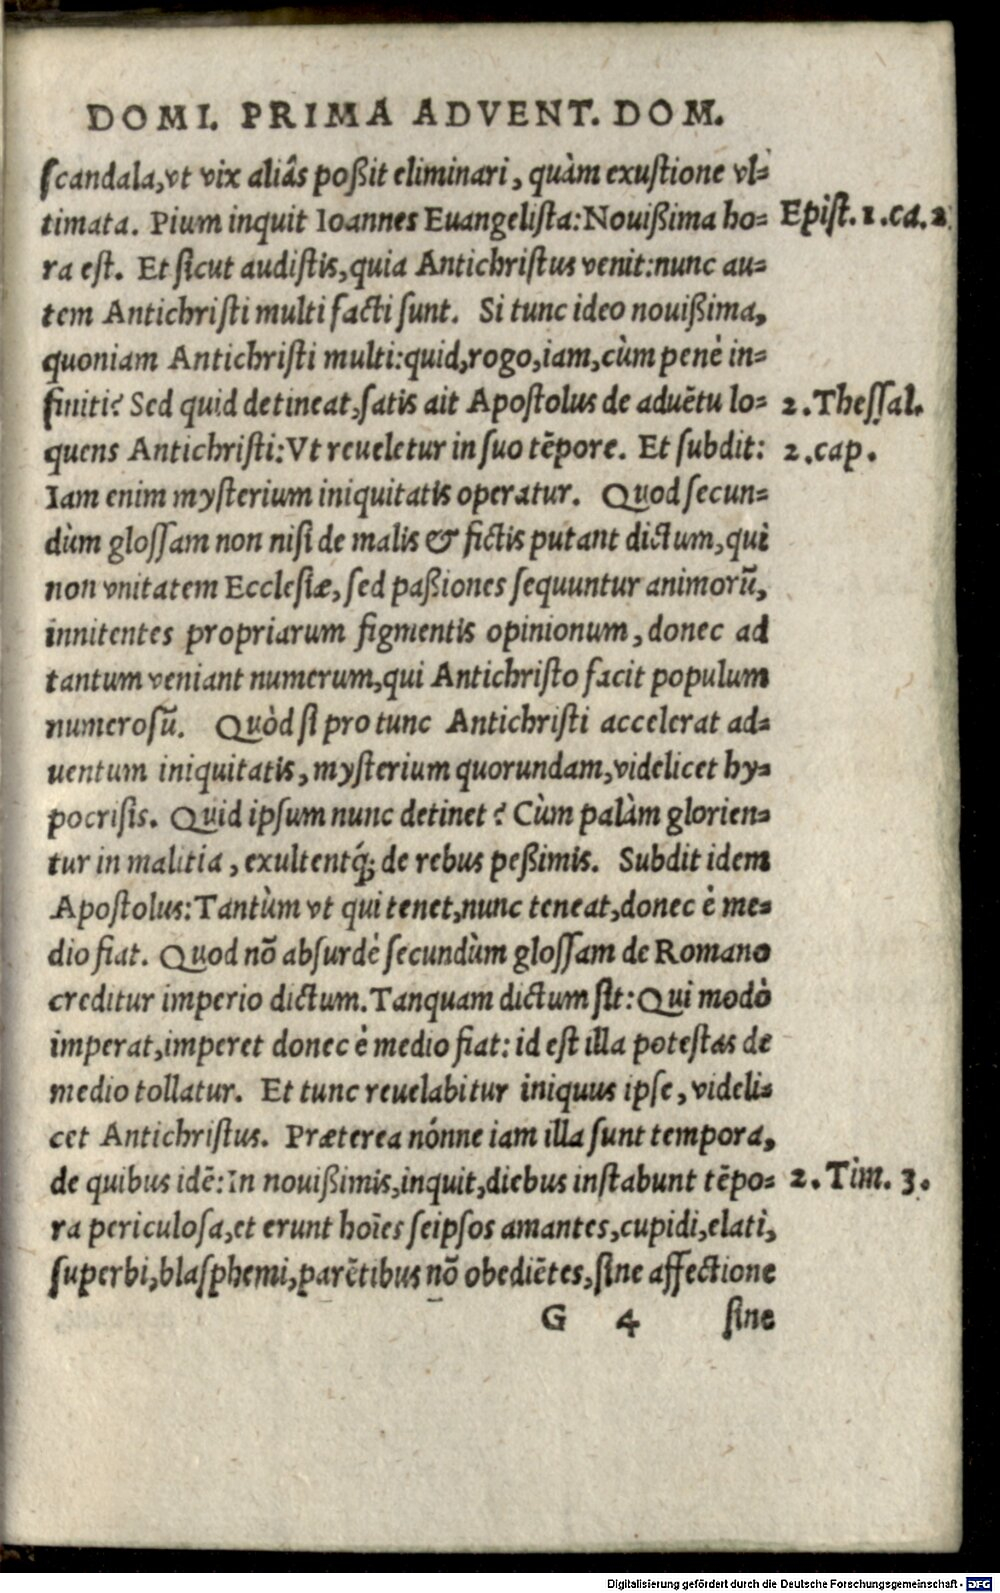 DOMI. PRIMA ADVENT. DOM.
ſcandala,vt vix aliâs poßit eliminari, quàm exuſtione vl-
timata. Pium inquit Ioannes Euangeliſta:Nouißima ho- Epiſt. 1. ca. 2.
ra eſt. Et ſicut audiſtis,quia Antichriſtus venit:nunc au-
tem Antichriſti multi facti ſunt. Si tunc ideo nouißima,
quoniam Antichriſti multi:quid,rogo,iam,cùm penè in-
finiti? Sed quid detineat,ſatis ait Apoſtolus de aduētu lo- 2. Theſſal.
quens Antichriſti:Vt reueletur in ſuo tēpore. Et ſubdit: 2. cap.
Iam enim myſterium iniquitatis operatur. Quod ſecun-
dùm gloſſam non niſi de malis & fictis putant dictum,qui
non vnitatem Eccleſiæ, ſed paßiones ſequuntur animorū,
innitentes propriarum figmentis opinionum, donec ad
tantum veniant numerum,qui Antichriſto facit populum
numeroſū. Quòd ſi pro tunc Antichriſti accelerat ad-
uentum iniquitatis, myſterium quorundam,videlicet hy-
pocriſis. Quid ipſum nunc detinet? Cùm palàm glorien-
tur in malitia, exultentq́; de rebus peßimis. Subdit idem
Apoſtolus:Tantùm vt qui tenet,nunc teneat,donec è me-
dio fiat. Quod nō abſurdè ſecundùm gloſſam de Romano
creditur imperio dictum. Tanquam dictum ſit: Qui modò
imperat,imperet donec è medio fiat: id eſt illa poteſtas de
medio tollatur. Et tunc reuelabitur iniquus ipſe, videli-
cet Antichriſtus. Præterea nónne iam illa ſunt tempora,
de quibus idē:In nouißimis,inquit,diebus inſtabunt tēpo- 2. Tim. 3.
ra periculoſa,et erunt hoīes ſeipſos amantes,cupidi,elati,
ſuperbi,blaſphemi,parētibus nō obediētes,ſine affectione
G 4 ſine
Digitalisierung gefördert durch die Deutsche Forschungsgemeinschaft - DFG